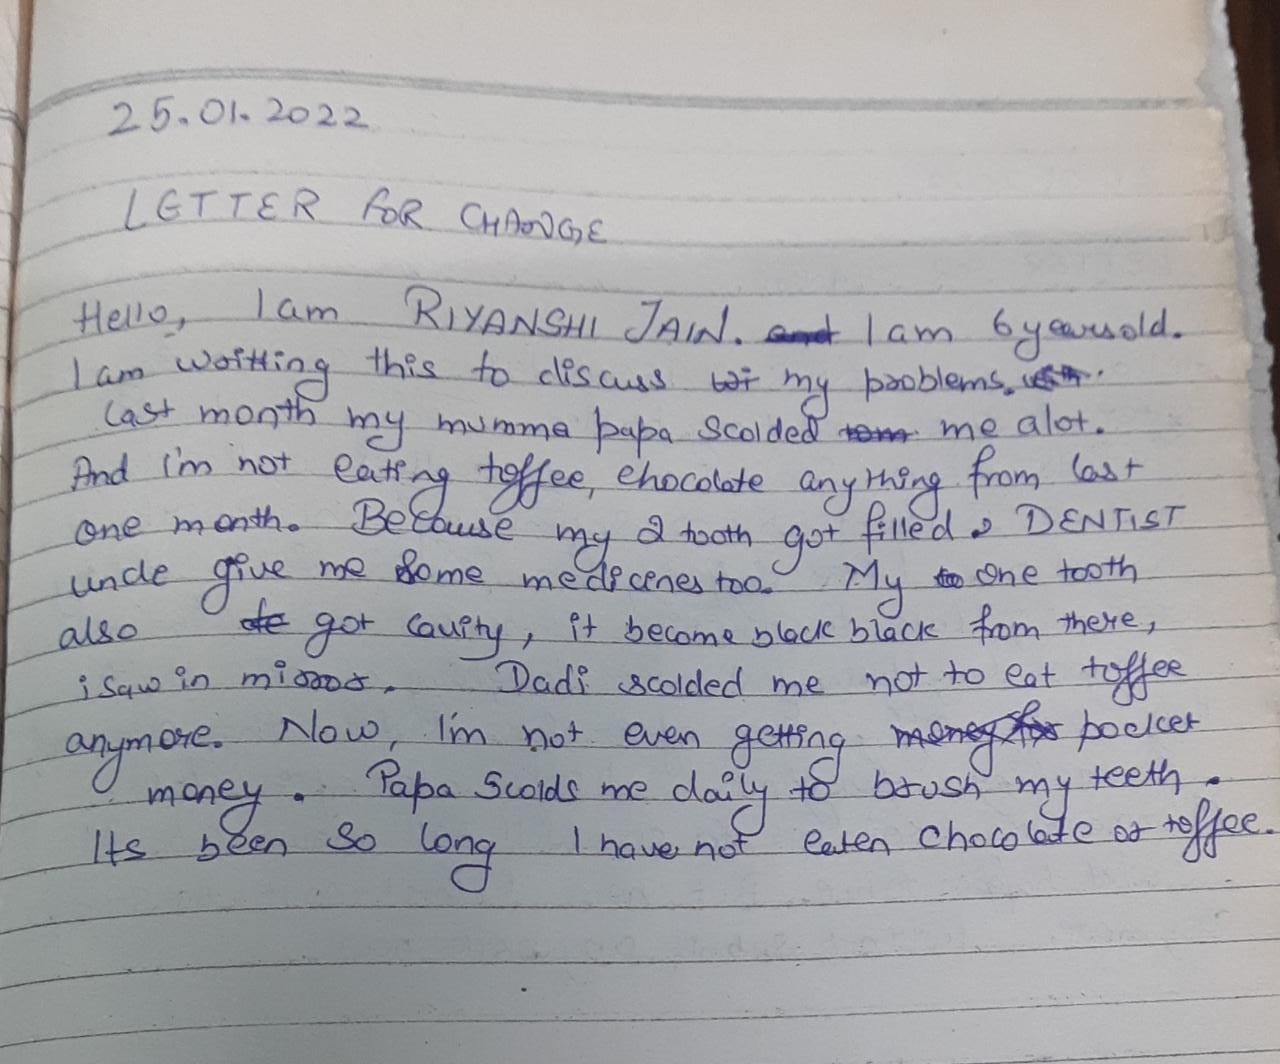 25.01.2022
LETTER FOR CHANGE
Hello, I am RIYANSHI JAIN. and I am 6 years old.
I am writting this to discuss my problems.
last month my mumma papa scolded me alot.
And i'm not eating toffee, chocolate anything from last
one month. Because my 2 tooth got filled & DENTIST
uncle give me some medicenes too. My to one tooth
also got cavity, it become black black from there,
i saw in mirror. Dadi scolded me not to eat toffee
anymore. Now, I'm not even getting money for pocket
money. Papa scolds me daily to brush my teeth.
Its been so long I have not eaten chocolate or toffee.